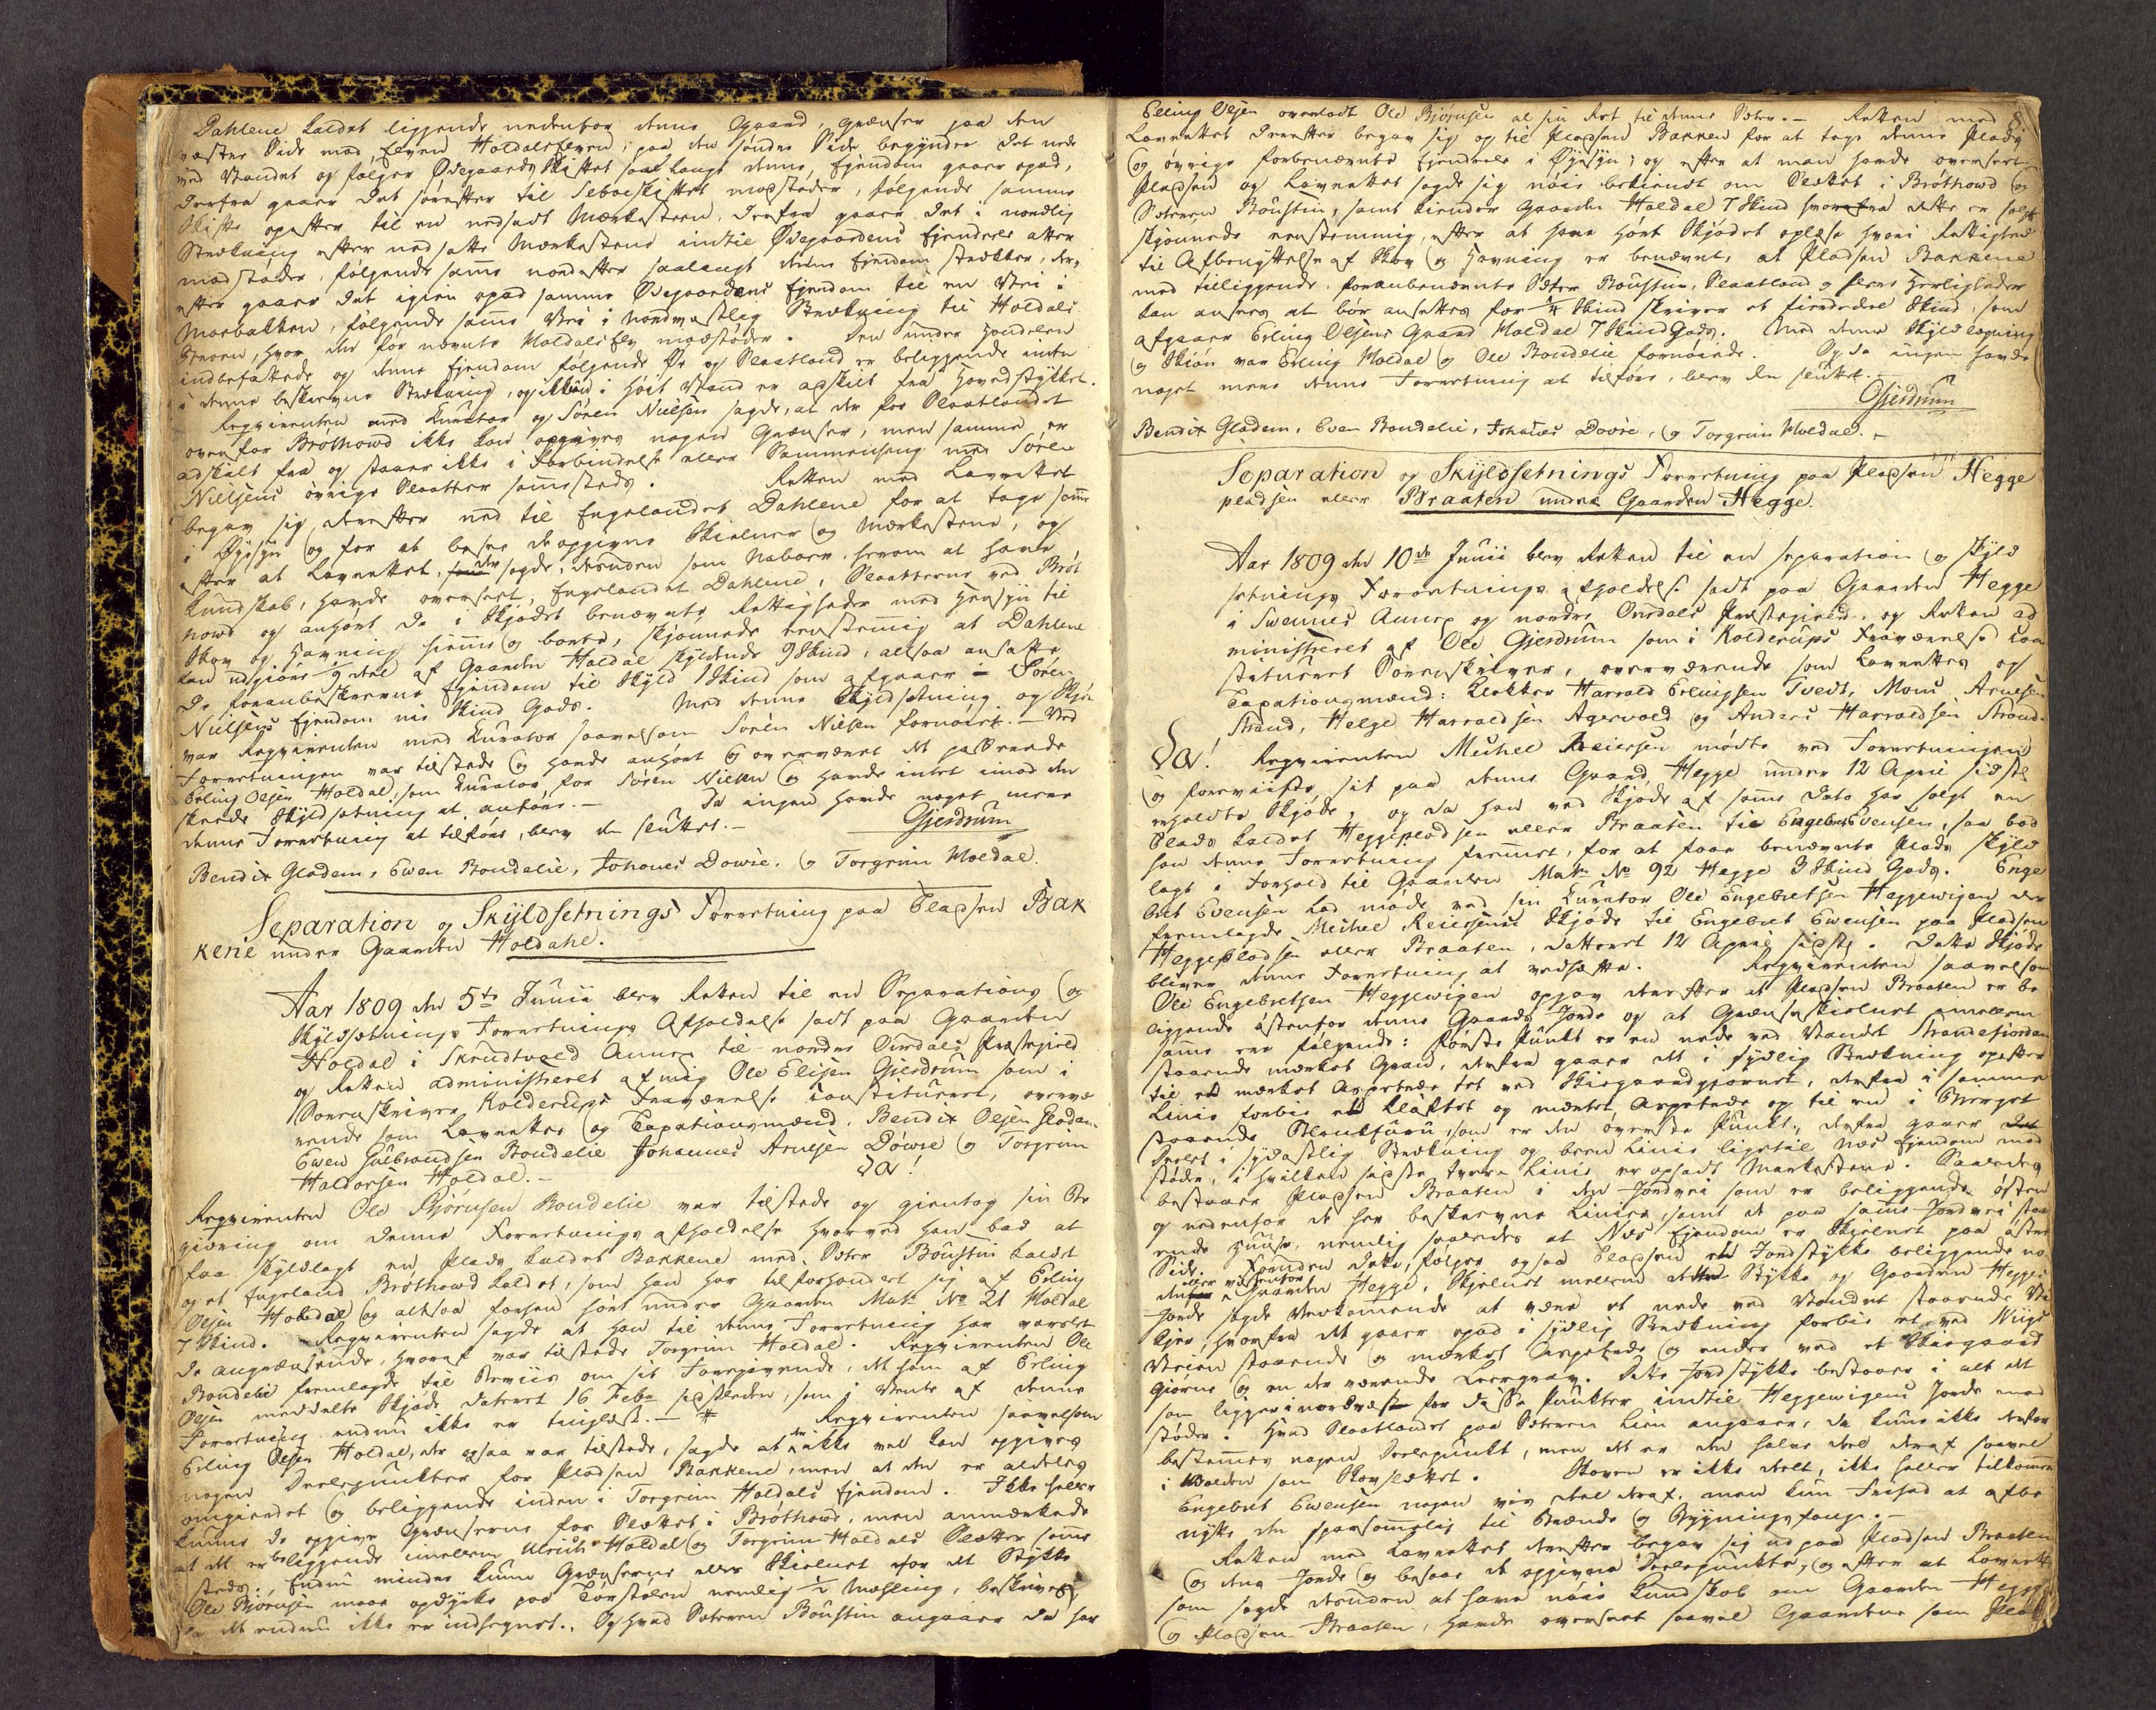 Dahlene kaldet liggende nedenfor denne Gaard, grændser paa den
væstre Side mod Elven Holdalselven; paa den søndre Side begynder det nede
ved Vandet og følger Ødegaards Skiftet saa langt denne Ejendom gaaer opad,
derfra gaaer det sørefter til Seboeskiftet modstøder, følgende samme
Skifte opefter til en nedsadt Mærkesteen, derfra gaaer det i nordlig
Strækning efter nedsatte Mærkestene indtil Ødegaardens Ejendeele atter
modstøder, følgende samme nordefter saalangt denne Ejendom strækker, der,
efter gaaer det igien opad samme Ødegaardens Ejendom til en Vei i
Moebakken, følgende samme Vei i nordvestlig Strækning til Holdals
Elven, hvor den før nævnte Holdals Elv modstøder. Den under Handelen
indbefattede og denne Ejendom følgende Øe og Slaatland er beliggende inden
i denne beskrevne Strækning, og ikkun i høit Vand er adskilt fra Hovedstykket.
Reqvirenten med Curator og Søren Nielsen sagde, at der for Slaatlandet
ovenfor Brøthowd ikke kan opgives nogen Grændser, men samme er
adskilt fra og staaer ikke i Forbindelse eller Sammenheng med Søren
Nielsens øvrige Slaatter sammesteds. Retten med Laugrettet
begav sig derefter ned til Engelandet Dahlene for at tage samme
i Øyesyn og for at besee de opgivne Skielner og Mærkestene, og
efter at Laugrettet, der sagde desuden som Naboer hersom at have
Kundskab, havde overseet Engelandet Dahlene, Slaatterne ved Brøt
howd og anhørt de i Skjødet benævnte Rettigheder med Hensyn til
Skov og Havning hiemme og borte, skjønnede eenstemmig at Dahlene
kan udgiøre 1/9 deel af Gaarden Holdal skyldende 9 Skind, altsaa ansatte
de foranbeskrevne Ejendom til Skyld 1 Skind som afgaaer i Søren
Nielsens Ejendom nie Skind Gods. Med denne Skyldsætning og Skjøn
var Reqvirenten med Curator saavelsom Søren Nielsen fornøiet. – Ved
Forretningen var tilstede og havde anhørt og overværet det passerede
Erling Olsen Holdal, som Curator for Søren Nielsen og havde intet imod den
skeede Skyldsætning at anføre. – Da ingen havde noget mere
denne Forretning at tilføre, blev den sluttet. –
Gjerdrum
Bendix Gladem, Ewen Bondelie, Johanes Dowre, og Torgrim Moldal.
Separation og Skyldsetnings Forretning paa Pladsen Bak
kene under Gaarden Holdahl.
Aar 1809 den 5te Junii blev Retten til en Separations og
Skyldsætnings Forretnings Afholdelse sadt paa Gaarden
Holdal i Skrudtvold Annex til nordre Ourdals Præstegield
og Retten administreret af mig Ole Elisen Gjerdrum som i
Sorenskriver Kolderups Fraværelse constitueret, overvæ
rende som Laugrettes og Taxationsmænd, Bendix Olsen Gladem
Ewen Gulbrandsen Bondelie Johannes Arnesen Dowre og Torgrim
Haldorsen Holdal. – Da!
Reqvirenten Ole Bjørnsen Bondelie var tilstede og gientog sin Be
giæring om denne Forretnings Afholdelse hvorved han bad at
faa skyldlagt en Plads kaldet Bakkene med Sæter Boustin kaldet
og et Engeland Brøthowd kaldet, som han har tilforhandlet sig af Erling
Olsen Holdal og altsaa forhen hørt under Gaarden Matr. No 21 Holdal
7 Skind. Reqvirenten sagde at han til denne Forretning har varslet
de angrændsende, hvoraf var tilstede Torgrim Holdal. Reqvirenten Ole
Bondelie fremlagde til Beviis om sit Foregivende, det ham af Erling
Olsen meddeelte Skjøde dateret 16 Febr. sidstleden, som i Vente af denne
Forretning endnu ikke er tinglæst. – # Reqvirenten saavelsom
Erling Olsen Holdal, der ogsaa var tilstede, sagde at der ikke vel kan opgives
nogen Deelepunkter for Pladsen Bakkene, men at den er aldeles
omgierdet og beliggende inden i Torgrim Holdals Ejendom. Ikke heller
kunne de opgive Grændserne for Slættet i Brøthowd, men anmærkede
at det er beliggende imellem Ulrich Holdal og Torgrim Holdals Slætter samme
steds., Endnu mindre kunne Grændserne eller Skielnet for det Stykke
Ole Bjørnsen maae opdyrke paa Tørstølen nemlig 1/2 Mæhling, beskrives
da det endnu ikke er indhegnet. Og hvad Sæteren Boustin angaaer da har
8
Erling Olsen overladt Ole Bjørnsen al sin Ret til denne Sæter. – Retten med
Laugrettet derefter begav sig op til Pladsen Bakken for at tage denne Plads
og øvrige forbenævnte Ejendeele i Øyesyn; og efter at man havde overseet
Pladsen og Laugrettet sagde sig nøie bekiendt om Slættet i Brøthowd og
Sæteren Boustin, samt kiender Gaarden Holdal 7 Skind hvorfra dette er solgt
skjønnede eenstemmig, efter at have hørt Skjødet oplæse hvori Rettighed
til Afbenyttelse af Skov og Havning er benævnet, at Pladsen Bakkene
med tilliggende foranbenævnte Sæter Boustin, Slaatland og fleere Herligheder
kan ansees at bør ansættes for 1/4 Skind skriver et fierdedeel Skind, som
afgaaer Erling Olsens Gaard Holdal 7 Skind Gods. Med denne Skyldlægning
og Skiøn var Erling Holdal og Ole Bondelie fornøiede. Og da ingen havde
noget mere denne Forretning at tilføre, blev den sluttet. –
Gjerdrum
Bendix Gladem, Even Bondelie, Johanes Dovre, og Torgrim Moldal. –
Separation og Skyldsetnings Forretning paa Pladsen Hegge
pladsen eller Braaten under Gaarden Hegge.
Aar 1809 den 10de Junii blev Retten til en Separation og Skyld
sætnings Forretnings Afholdelse sadt paa Gaarden Hegge
i Svennes Annex og nordre Ourdals Præstegield, og Retten ad
ministreret af Ole Gjerdrum som i Kolderups Fraværelse con
stitueret Sorenskriver, overværende som Laugrettes og
Taxationsmænd: Klokker Harrald Erlingssen Tvedt, Mons Arnesen
Strand, Helge Harraldsen Agervold og Anders Harraldsen Strand.
Da! Reqvirenten Michel Reiersen mødte ved Forretningen
og foreviiste sit paa denne Gaard Hegge under 12 April sidstl.
erholdte Skjøde, og da han ved Skjøde af samme Dato har solgt en
Plads kaldet Heggepladsen eller Braaten til Engebret Evensen, saa bad
han denne Forretning fremmet, for at faae benævnte Plads skyld
lagt i Forhold til Gaarden Matr. No 92 Hegge 3 Skind Gods. Enge
bret Evensen lod møde ved sin Curator Ole Engebretsen Heggewigen der
fremlagde Michel Reiersens Skjøde til Engebret Ewensen paa Pladsen
Heggepladsen eller Braaten, datteret 12 April sidstl. Dette Skjøde
bliver denne Forretning at vedhæfte. Reqvirenten saavelsom
Ole Engebretsen Heggewigen opgav derefter at Pladsen Braaten er be
liggende østenfor denne Gaards Jorde og at Grændseskielnet imellem
samme er følgende: første Punkt er en nede ved Vandet Strandefiorden
staaende mærket Gran, derfra gaaer det i sydlig Strækning opefter
til et mærket Aspetræe tet ved Skiegaardgiærdet, derfra i samme
Linie forbie et kløftet og mærket Aspetræe op til en i Berget
staaende Blankfuru, som er den øverste Punkt, derfra gaaer
Deelet i sydostlig Strækning og beene Linie ligetil Næs Ejendom mod
støder, i hvilken sidste tvære Linie er opsadt Mærkestene. Saaledes
bestaaer Pladsen Braaten i den Jordvei som er beliggende østen
og nedenfor de her beskrevne Linier, samt de paa samme Jordvei staa
ende Huuse, nemlig saaledes at Næs Ejendom er Skielnet paa østre
Side. Foruden dette, følger ogsaa Pladsen et Jordstykke beliggende ne
denfor eller vestenfor Gaarden Hegge, Skielnet mellem dette Stykke og Gaarden Hegges
Jorde sagde Vedkommende at være et nede ved Vandet staaende Bir
ketræ hvorfra det gaaer opad i sydlig Strækning forbie et ved Wiigs
Veien staaende og mærket Aspetræe og ender ved et Skiegaard
giærde og en der værende Leergrav. Dette Jordstykke bestaaer i alt det
som ligger i nordvest for disse Punkter indtil Heggewigens Jorde mod
støder. Hvad Slaatlandet paa Sæteren Lien angaaer, da kunne ikke derfor
bestemmes nogen Deelepunkt, men det er den halve Deel deraf saavel
i Volden som Skovslættet. Skoven er ikke deelt, ikke heller tilkommer
Engebret Ewensen nogen vis Deel deraf, men kun Frihed at afbe
nytte den sparsommelig til Brænde og Bygningsfang. –
Retten med Laugrettet derefter begav sig ud paa Pladsen Braaten
og dens Jorde og besaae de opgivne Deelepunkter, og efter at Laugrettet
som sagde desuden at have nøie Kundskab om Gaarden Hegge
og Pladsen Braaten, havde overseet saavel Gaardene som Plad